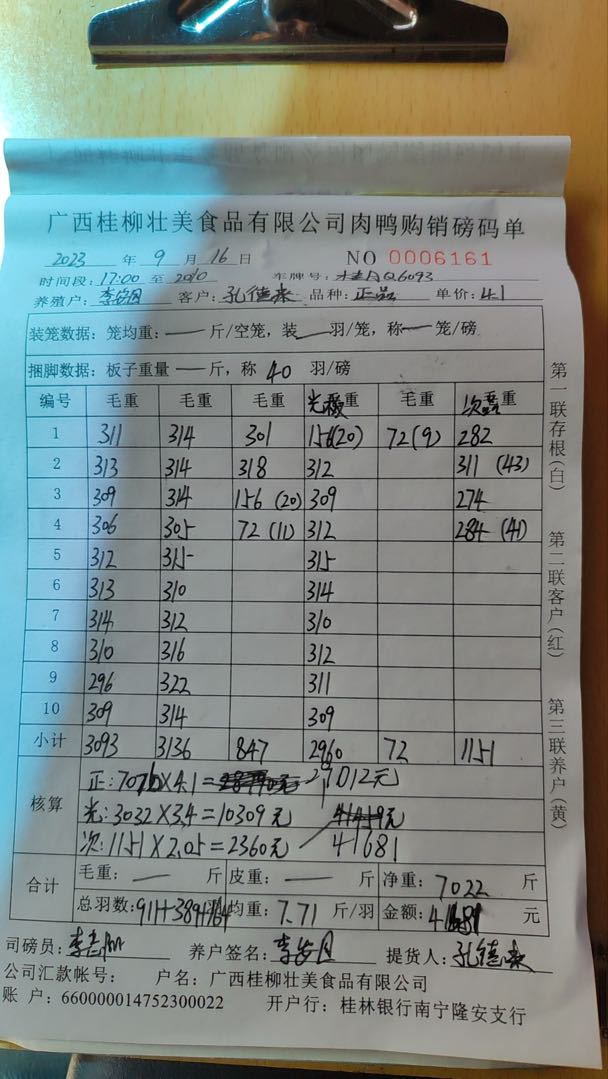 广西桂柳壮美食品有限公司肉鸭购销磅码单
2023 年 9 月 16 日 NO 0006161
时间段: 17:00 至 2010 车牌号: 桂AQ6093
养殖户: 客户: 孔德来 品种: 正品 单价: 4.1
装笼数据: 笼均重: — 斤/空笼, 装 — 羽/笼, 称 — 笼/磅
捆脚数据: 板子重量 — 斤, 称 40 羽/磅
编号 毛重 毛重 毛重 光 重 毛重 次 重
1 311 314 301 156(20) 72(9) 282
2 313 314 318 312 311 (43)
3 309 314 156 (20) 309 274
4 306 305 72 (11) 312 284 (41)
5 312 315 315
6 313 310 314
7 314 312 310
8 310 316 312
9 296 322 311
10 309 314 309
小计 3093 3136 847 2960 72 1151
核算
正: 7076×4.1= 29012元
光: 3032×3.4=10309元 41419元
次: 1151×2.05=2360元 41681
合计
毛重: — 斤 皮重: — 斤 净重: 7022 斤
总羽数: 911+389+164 均重: 7.71 斤/羽 金额: 41681 元
司磅员: 养户签名: 提货人: 孔德来
公司汇款帐号: 户名: 广西桂柳壮美食品有限公司
账 户: 660000014752300022 开户行: 桂林银行南宁隆安支行
第一联存根(白)
第二联客户(红)
第三联养户(黄)